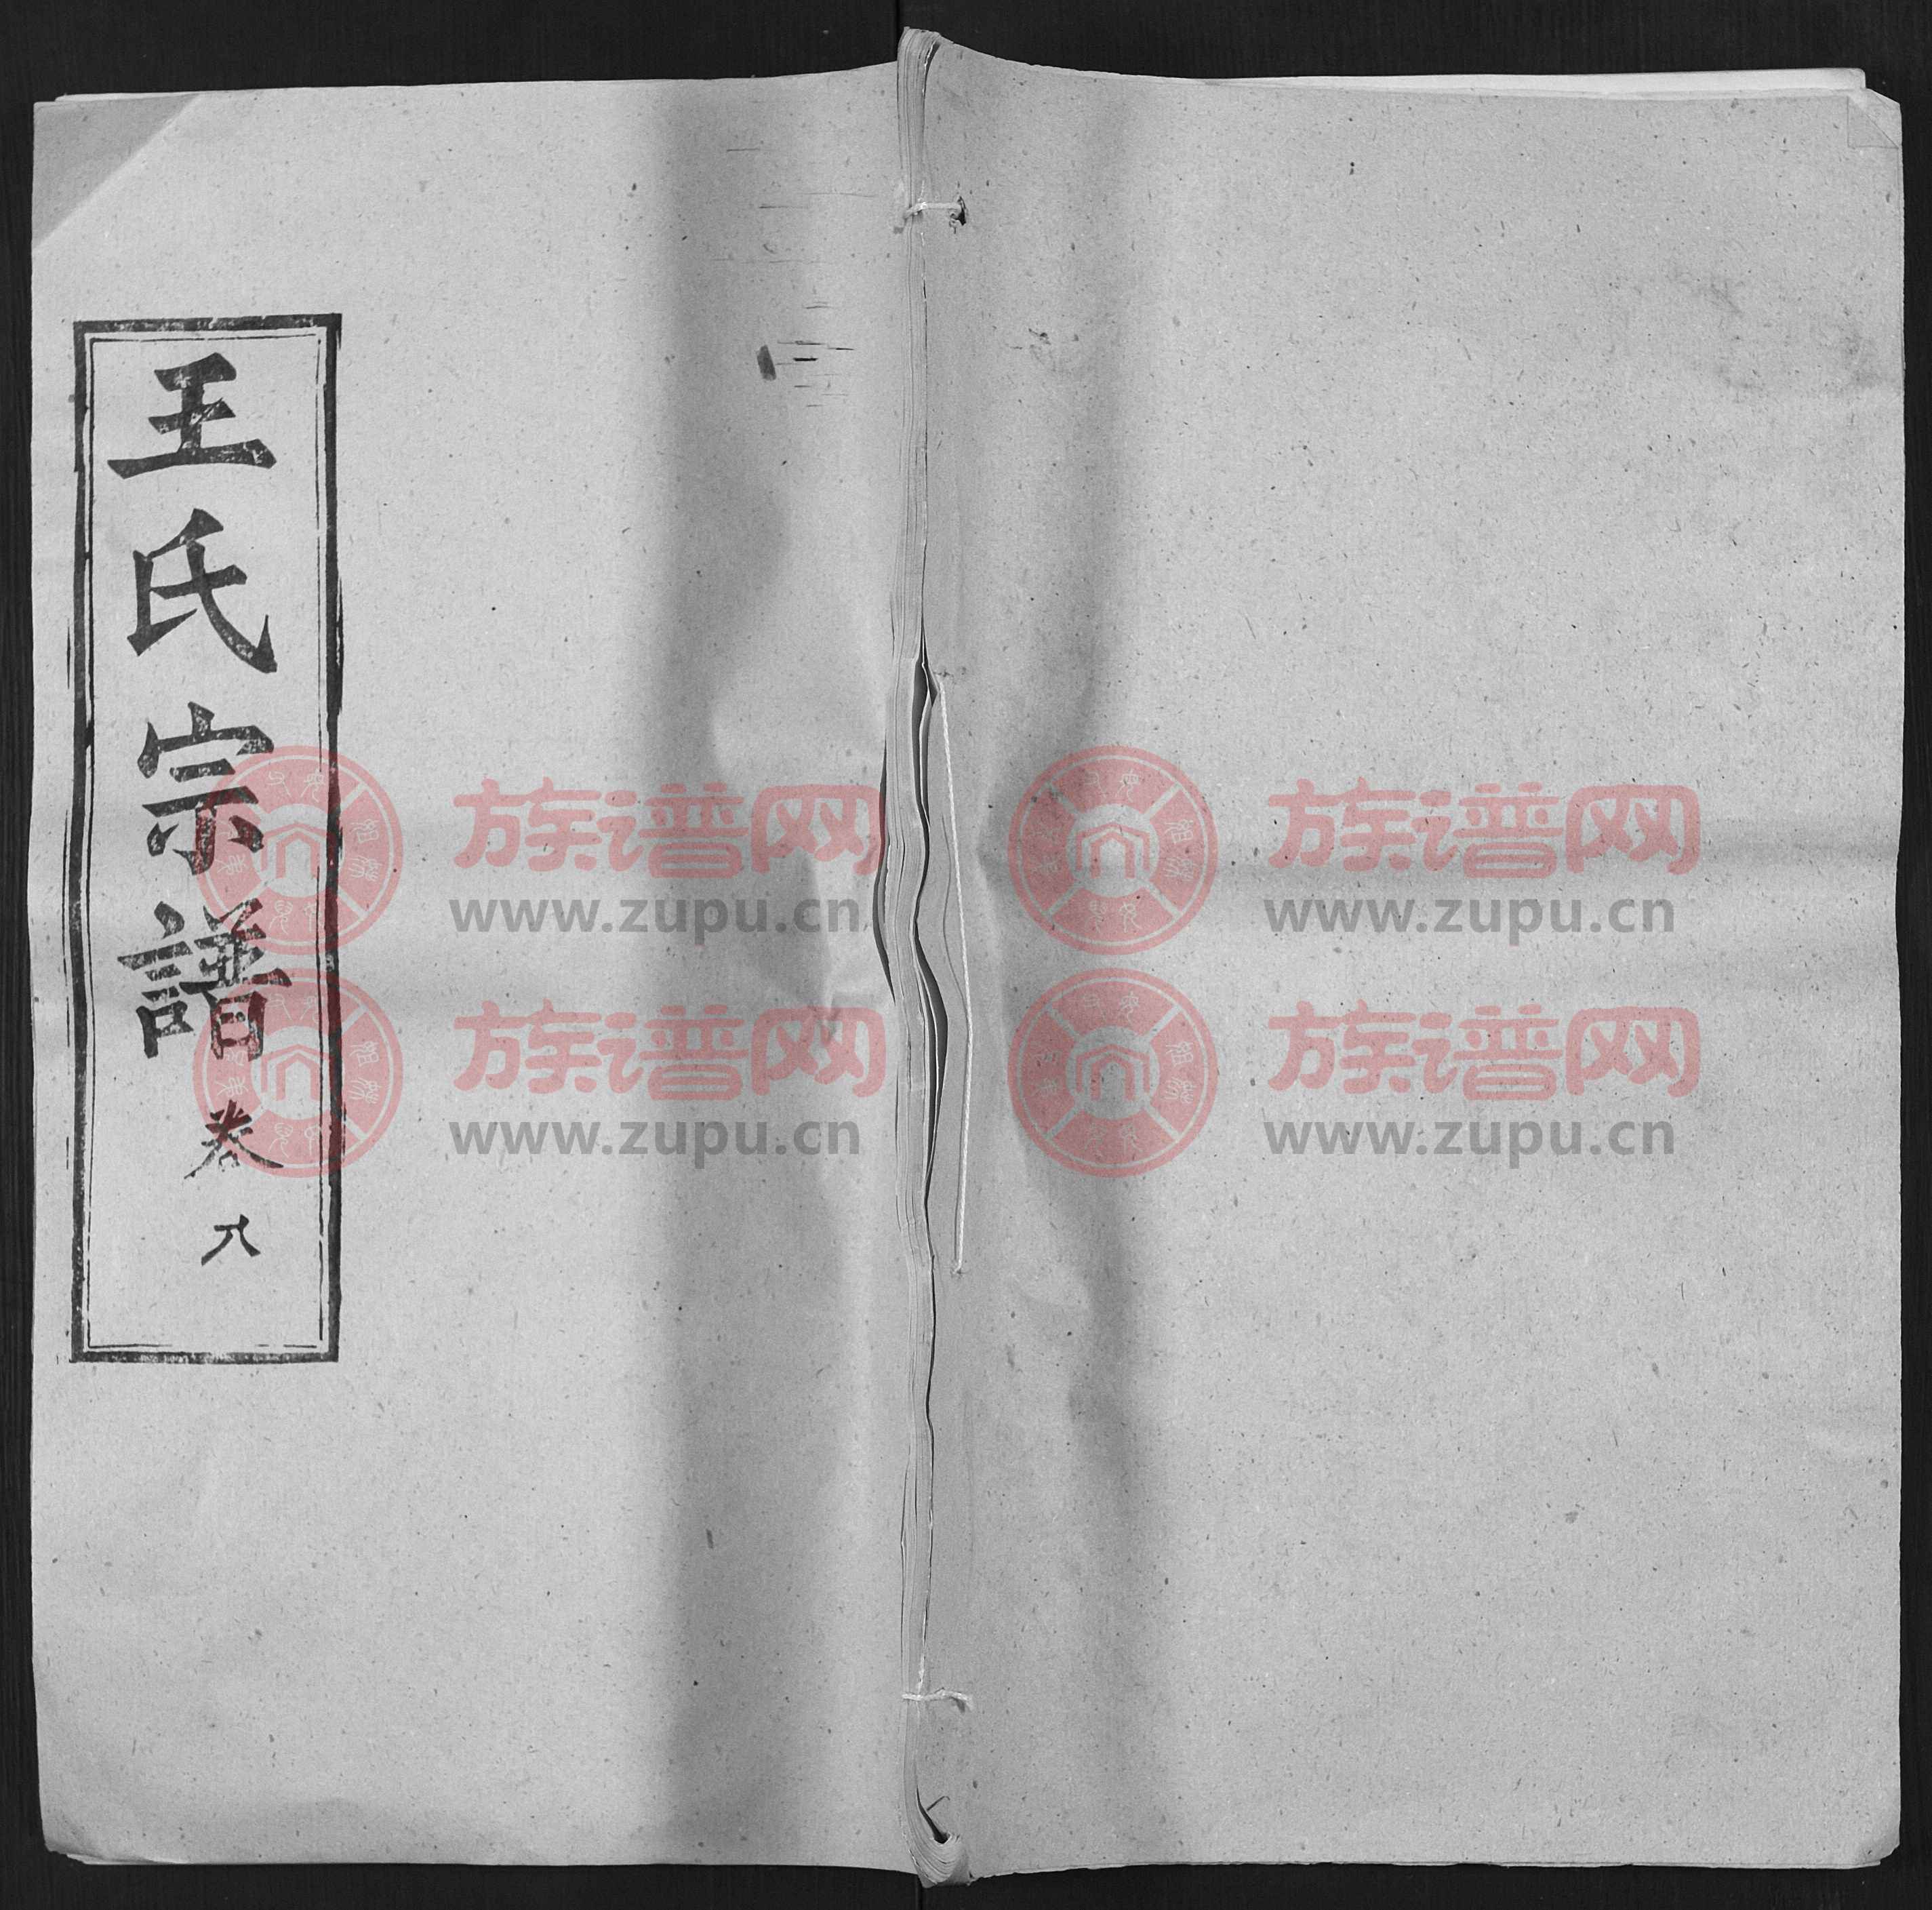 王氏宗譜 卷八
族谱网
www.zupu.cn
族谱网
www.zupu.cn
族谱网
www.zupu.cn
族谱网
www.zupu.cn